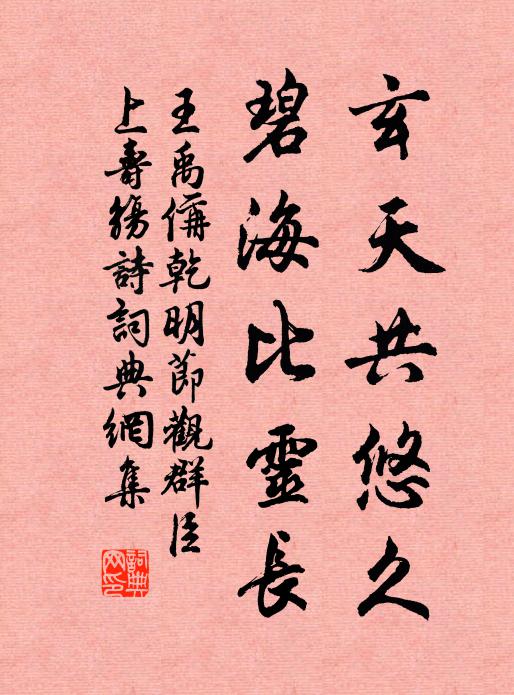 玄天共悠久
碧海比靈長
王禹偁乾明節觀群臣
上壽觴詩詞典網集
詞典网印